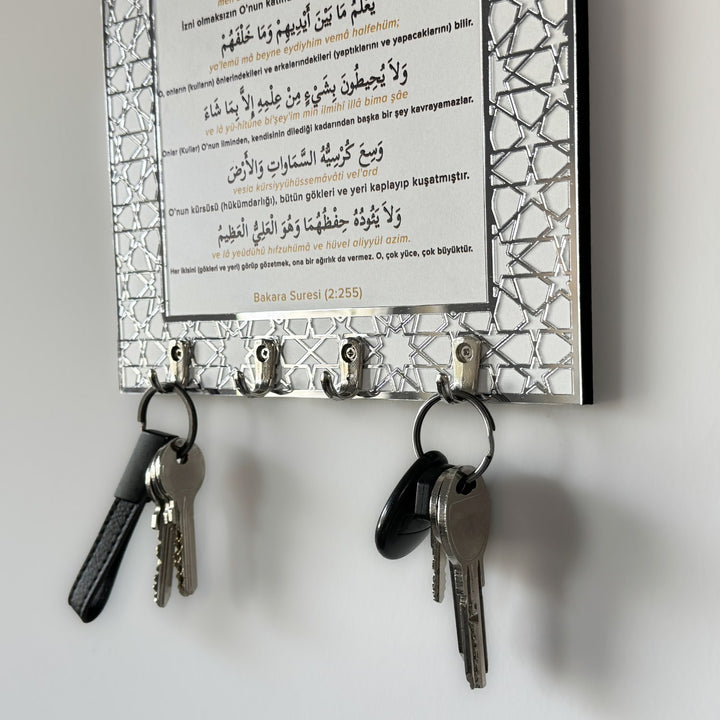 İzni olmaksızın O'nun katında
يَعْلَمُ مَا بَيْنَ أَيْدِيهِمْ وَمَا خَلْفَهُمْ
ya'lemü mâ beyne eydiyhim vemâ halfehüm;
O, onların (kulların) önlerindekileri ve arkalarındakileri (yaptıklarını ve yapacaklarını) bilir.
وَلاَ يُحِيطُونَ بِشَيْءٍ مِنْ عِلْمِهِ إِلاَّ بِمَا شَاءَ
ve lâ yü-hîtûne bi'şey'im min ilmihî illâ bima şâe
Onlar (Kullar) O'nun ilminden, kendisinin dilediği kadarından başka bir şey kavrayamazlar.
وَسِعَ كُرْسِيُّهُ السَّمَاوَاتِ وَالأَرْضَ
vesia kürsiyyühüssemâvâti vel'ard
O'nun kürsüsü (hükümdarlığı), bütün gökleri ve yeri kaplayıp kuşatmıştır.
وَلاَ يَئُودُهُ حِفْظُهُمَا وَهُوَ الْعَلِيُّ الْعَظِيمُ
ve lâ yeûdühû hıfzuhümâ ve hüvel aliyyül azim.
Her ikisini (gökleri ve yeri) görüp gözetmek, ona bir ağırlık da vermez. O, çok yüce, çok büyüktür.
Bakara Suresi (2:255)